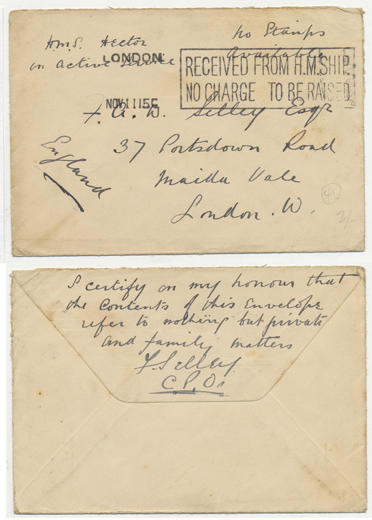 H.M.S. Hector
on active service
No Stamps
Available
LONDON.
NOV 11 15
RECEIVED FROM H.M. SHIP.
NO CHARGE TO BE RAISED
F. A. W. Selley Esqr
37 Portsdown Road
Maida Vale
London. W.
England
2/-
I certify on my honour that
the contents of this Envelope
refer to nothing but private
and family matters
F Selley
C.P.O.